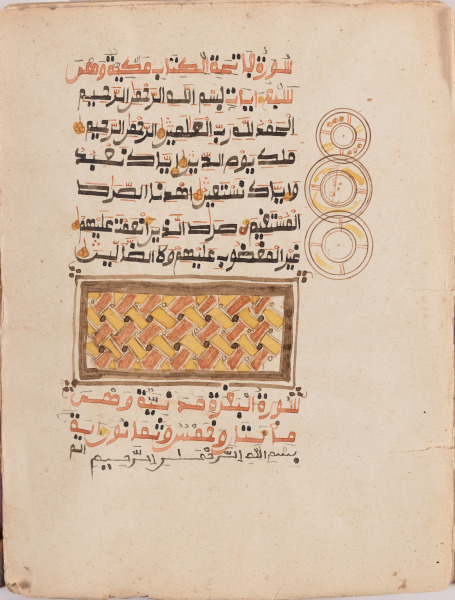 سورة فاتحة الكتاب مكية وهي
سبع ايات بسم الله الرحمن الرحيم
الحمد لله رب العلمين الرحمن الرحيم
ملك يوم الدين اياك نعبد
واياك نستعين اهدنا الصرط
المستقيم صرط الذين انعمت عليهم
غير المغضوب عليهم ولا الضالين
سورة البقرة مدنية وهي
مائتان وخمس وثمانون اية
بسم الله الرحمن الرحيم الم